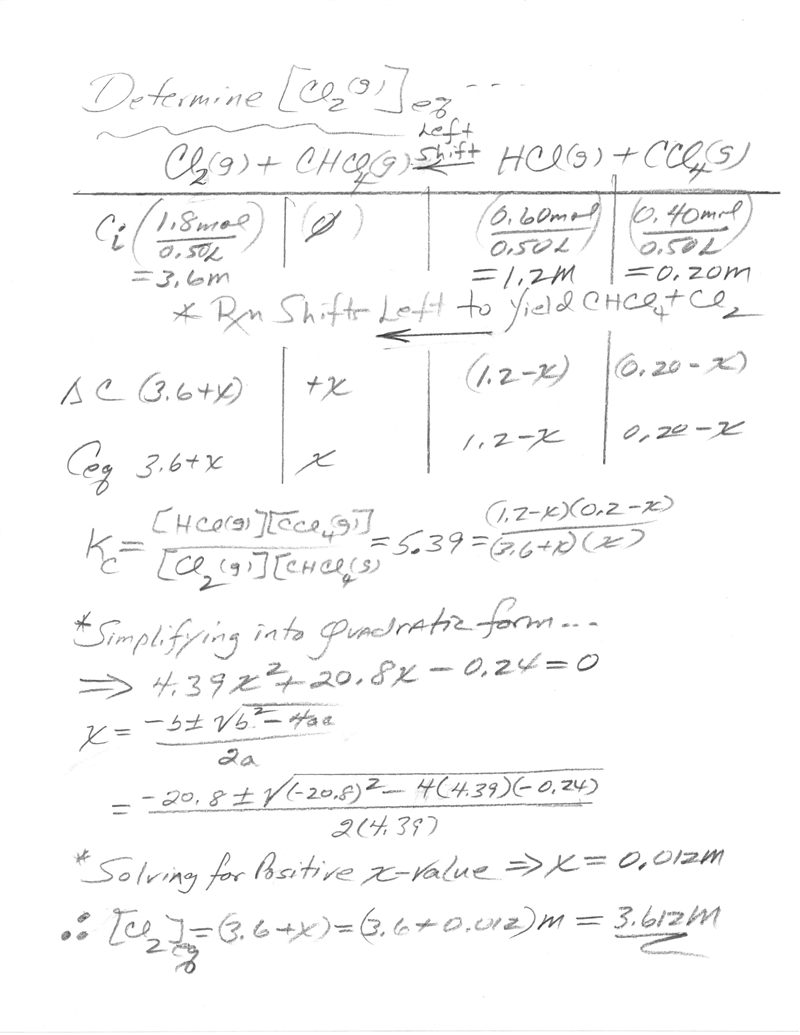 Determine [Cl₂(g)]eq ...
Left
Cl₂(g) + CHCl₄(g) ⇐ Shift HCl(g) + CCl₄(g)
Ci (1.8mol/0.50L) | (∅) | (0.60mol/0.50L) | (0.40mol/0.50L)
= 3.6m = 1.2M = 0.20m
* Rxn Shifts Left to yield CHCl₄ + Cl₂
←
ΔC (3.6+x) | +x | (1.2-x) | (0.20-x)
Ceq 3.6+x | x | 1.2-x | 0.20-x
Kc = [HCl(g)][CCl₄(g)]/[Cl₂(g)][CHCl₄(g) = 5.39 = (1.2-x)(0.2-x)/(3.6+x)(x)
*Simplifying into Quadratic form...
⇒ 4.39x² + 20.8x - 0.24 = 0
x = -b ± √b² - 4aa / 2a
= -20.8 ± √(-20.8)² - 4(4.39)(-0.24) / 2(4.39)
*Solving for Positive x-value ⇒ x = 0.012m
∴ [Cl₂]eq = (3.6+x) = (3.6+0.012)m = 3.612M